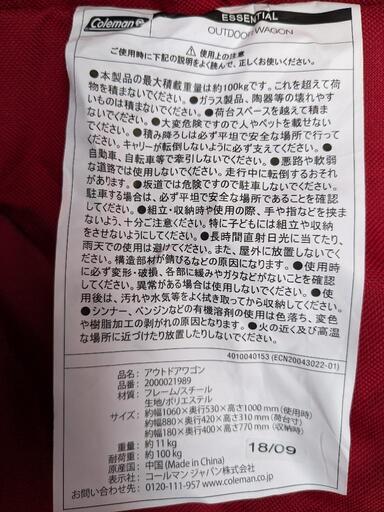 Coleman
ESSENTIAL
OUTDOOR WAGON
ご使用時に下記の説明をよく読み、正しくお使いください。
ご使用上の注意
●本製品の最大積載重量は約100kgです。これを超えて荷
物を積まないでください。●ガラス製品、陶器等の壊れやす
いものは積まないでください。●荷台スペースを越えて積ま
ないでください。●大変危険ですので人やペットを載せない
でください。●積み降ろしは必ず平坦で安全な場所で行って
ください。キャリーが転倒しないように必ず支えてください。●
自動車、自転車等で牽引しないでください。●悪路や軟弱
な道路では使用しないでください。走行中に転倒するおそれ
があります。●坂道では危険ですので駐車しないでください。
駐車する場合は、必ず平坦で安全な場所に駐車してくださ
い。●組立・収納時や使用の際、手や指などを挟まな
いよう、十分ご注意ください。特に子どもには組立や収納
をさせないようにしてください。●長時間直射日光に当てたり、
雨天での使用は避けてください。また、屋外に放置しないで
ください。構造部材が錆びるなどの原因になります。●使用時
に必ず変形・破損、各部に緩みやガタなどがないことを確認し、
異常がある場合は使用しないでください。●使
用後は、汚れや水気等をよく拭き取ってから収納してください。
●シンナー、ベンジンなどの有機溶剤の使用は色落ち、変色
や樹脂加工の剥がれの原因になります。●火の近く及び高温
な場所に近づけたり放置しないでください。
4010040153 (ECN20043022-01)
品名：アウトドアワゴン
品番：2000021989
材質：フレーム/スチール
生地/ポリエステル
サイズ：約幅1060×奥行530×高さ1000mm(使用時)
約幅880×奥行420×高さ310mm(荷台寸)
約幅180×奥行400×高さ770mm(収納時)
重量：約11kg
耐荷重：約100kg
原産国：中国(Made in China)
表示者：コールマン ジャパン株式会社
お問い合わせ先：0120-111-957 www.coleman.co.jp
18/09